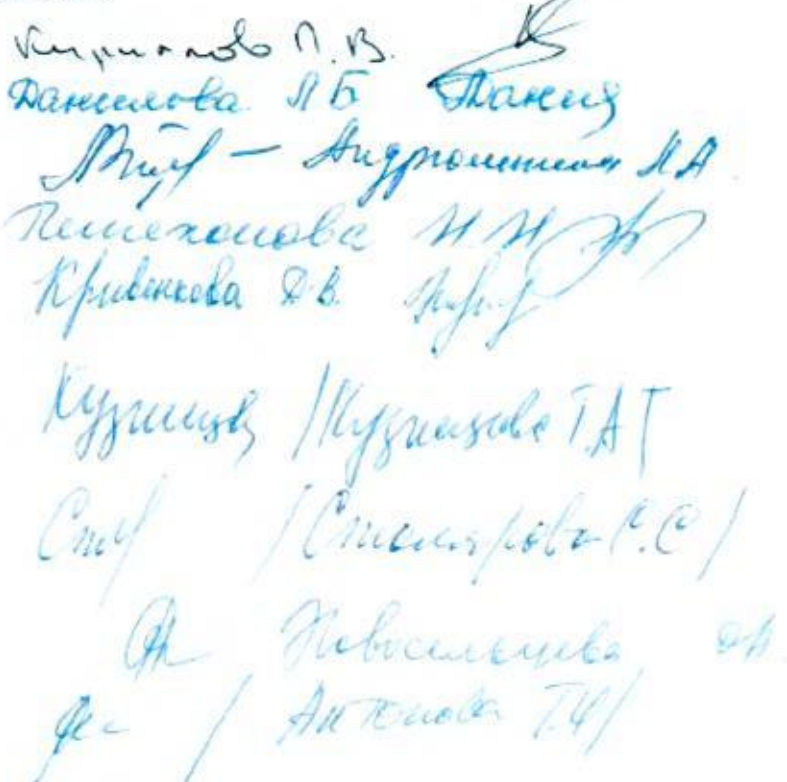 Кириллова П. В.
Данилова Л Б
Андрюшина М А.
Пешехонова Н. Н
Кривенкова Д. В.
Кузнецов / Кузнецова Т.А /
/ Столярова С. С /
Новосельцева О.Н.
/ Антонова Т.Ф /